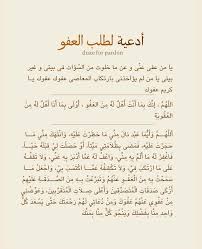 أدعية لطلب العفو
duaa for pardon
يا من عفى عنّي و عن ما خلوت من السَّوْآت في بيتي و غير
بيتي يا من لم يؤاخذني بارتكاب المعاصي عفوك عفوك يا
كريم عفوك
اللَّهُمَّ ، إنَّكَ بِمَا أنْتَ أهْلٌ لَهُ مِنَ العَفْوِ ، أوْلَى بِمَا أنَا أهْلٌ لَهُ مِنَ
العُقُوبَةِ
اللَّهُمَّ وَأيُّمَا عَبْدٍ نالَ مِنِّي مَا حَظَرْتَ عَلَيْهِ، وَانْتَهَكَ مِنِّي مَا
حَجَرْتَ عَلَيْهِ، فَمَضَى بِظُلامَتِي مَيِّتاً، أوْ حَصَلَتْ لِي قِبَلَهُ حَيّاً،
فَاغْفِرْ لَهُ مَا ألَمَّ بِهِ مِنِّي، وَاعْفُ لَهُ عَمَّا أدْبَرَ بِهِ عَنِّي،
وَلا تَقِفْهُ عَلَى مَا ارْتَكَبَ فِيَّ، وَلا تَكْشِفْهُ عَمَّا اكْتَسَبَ بِي،
وَاجْعَلْ مَا سَمَحْتُ بِهِ مِنَ العَفْوِ عَنْهُمْ، وَتَبَرَّعْتُ بِهِ مِنَ الصَّدَقَةِ عَلَيْهِمْ
أزْكَى صَدَقَاتِ المُتَصَدِّقِينَ وَأعْلَى صِلاتِ المُتَقَرِّبِينَ، وَعَوِّضْنِي
مِنْ عَفْوِي عَنْهُمْ عَفْوَكَ وَمِنْ دُعَائِي لَهُمْ رَحْمَتَكَ حَتَّى يَسْعَدَ كُلُّ
وَاحِدٍ مِنَّا بِفَضْلِكَ، وَيَنْجُوَ كُلٌّ مِنَّا بِمَنِّكَ